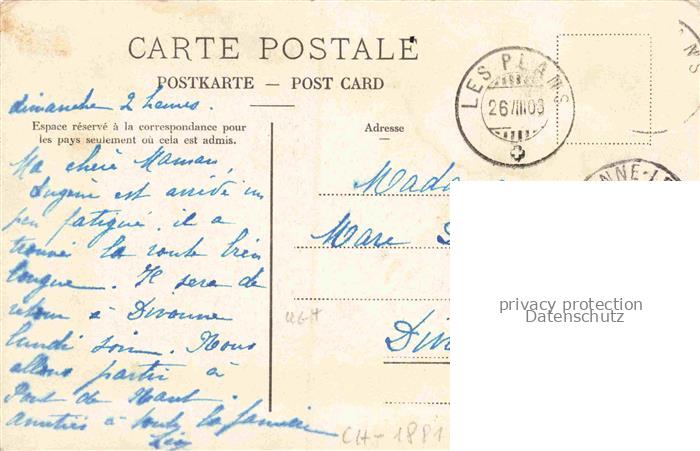 CARTE POSTALE
POSTKARTE — POST CARD
dimanche 2 heures.
Espace réservé à la correspondance pour
les pays seulement où cela est admis.
Adresse
Ma chère Maman,
Eugène est arrivé un
peu fatigué, il a
trouvé la route bien
longue. Il sera de
retour à Divonne
lundi soir. Nous
allons partir à
Pont de Nant.
amitiés à toute la famille
Mada
Marc
Div
LES PLANS
26/III/03
NNE-LE
NS
privacy protection
Datenschutz
CH-1881